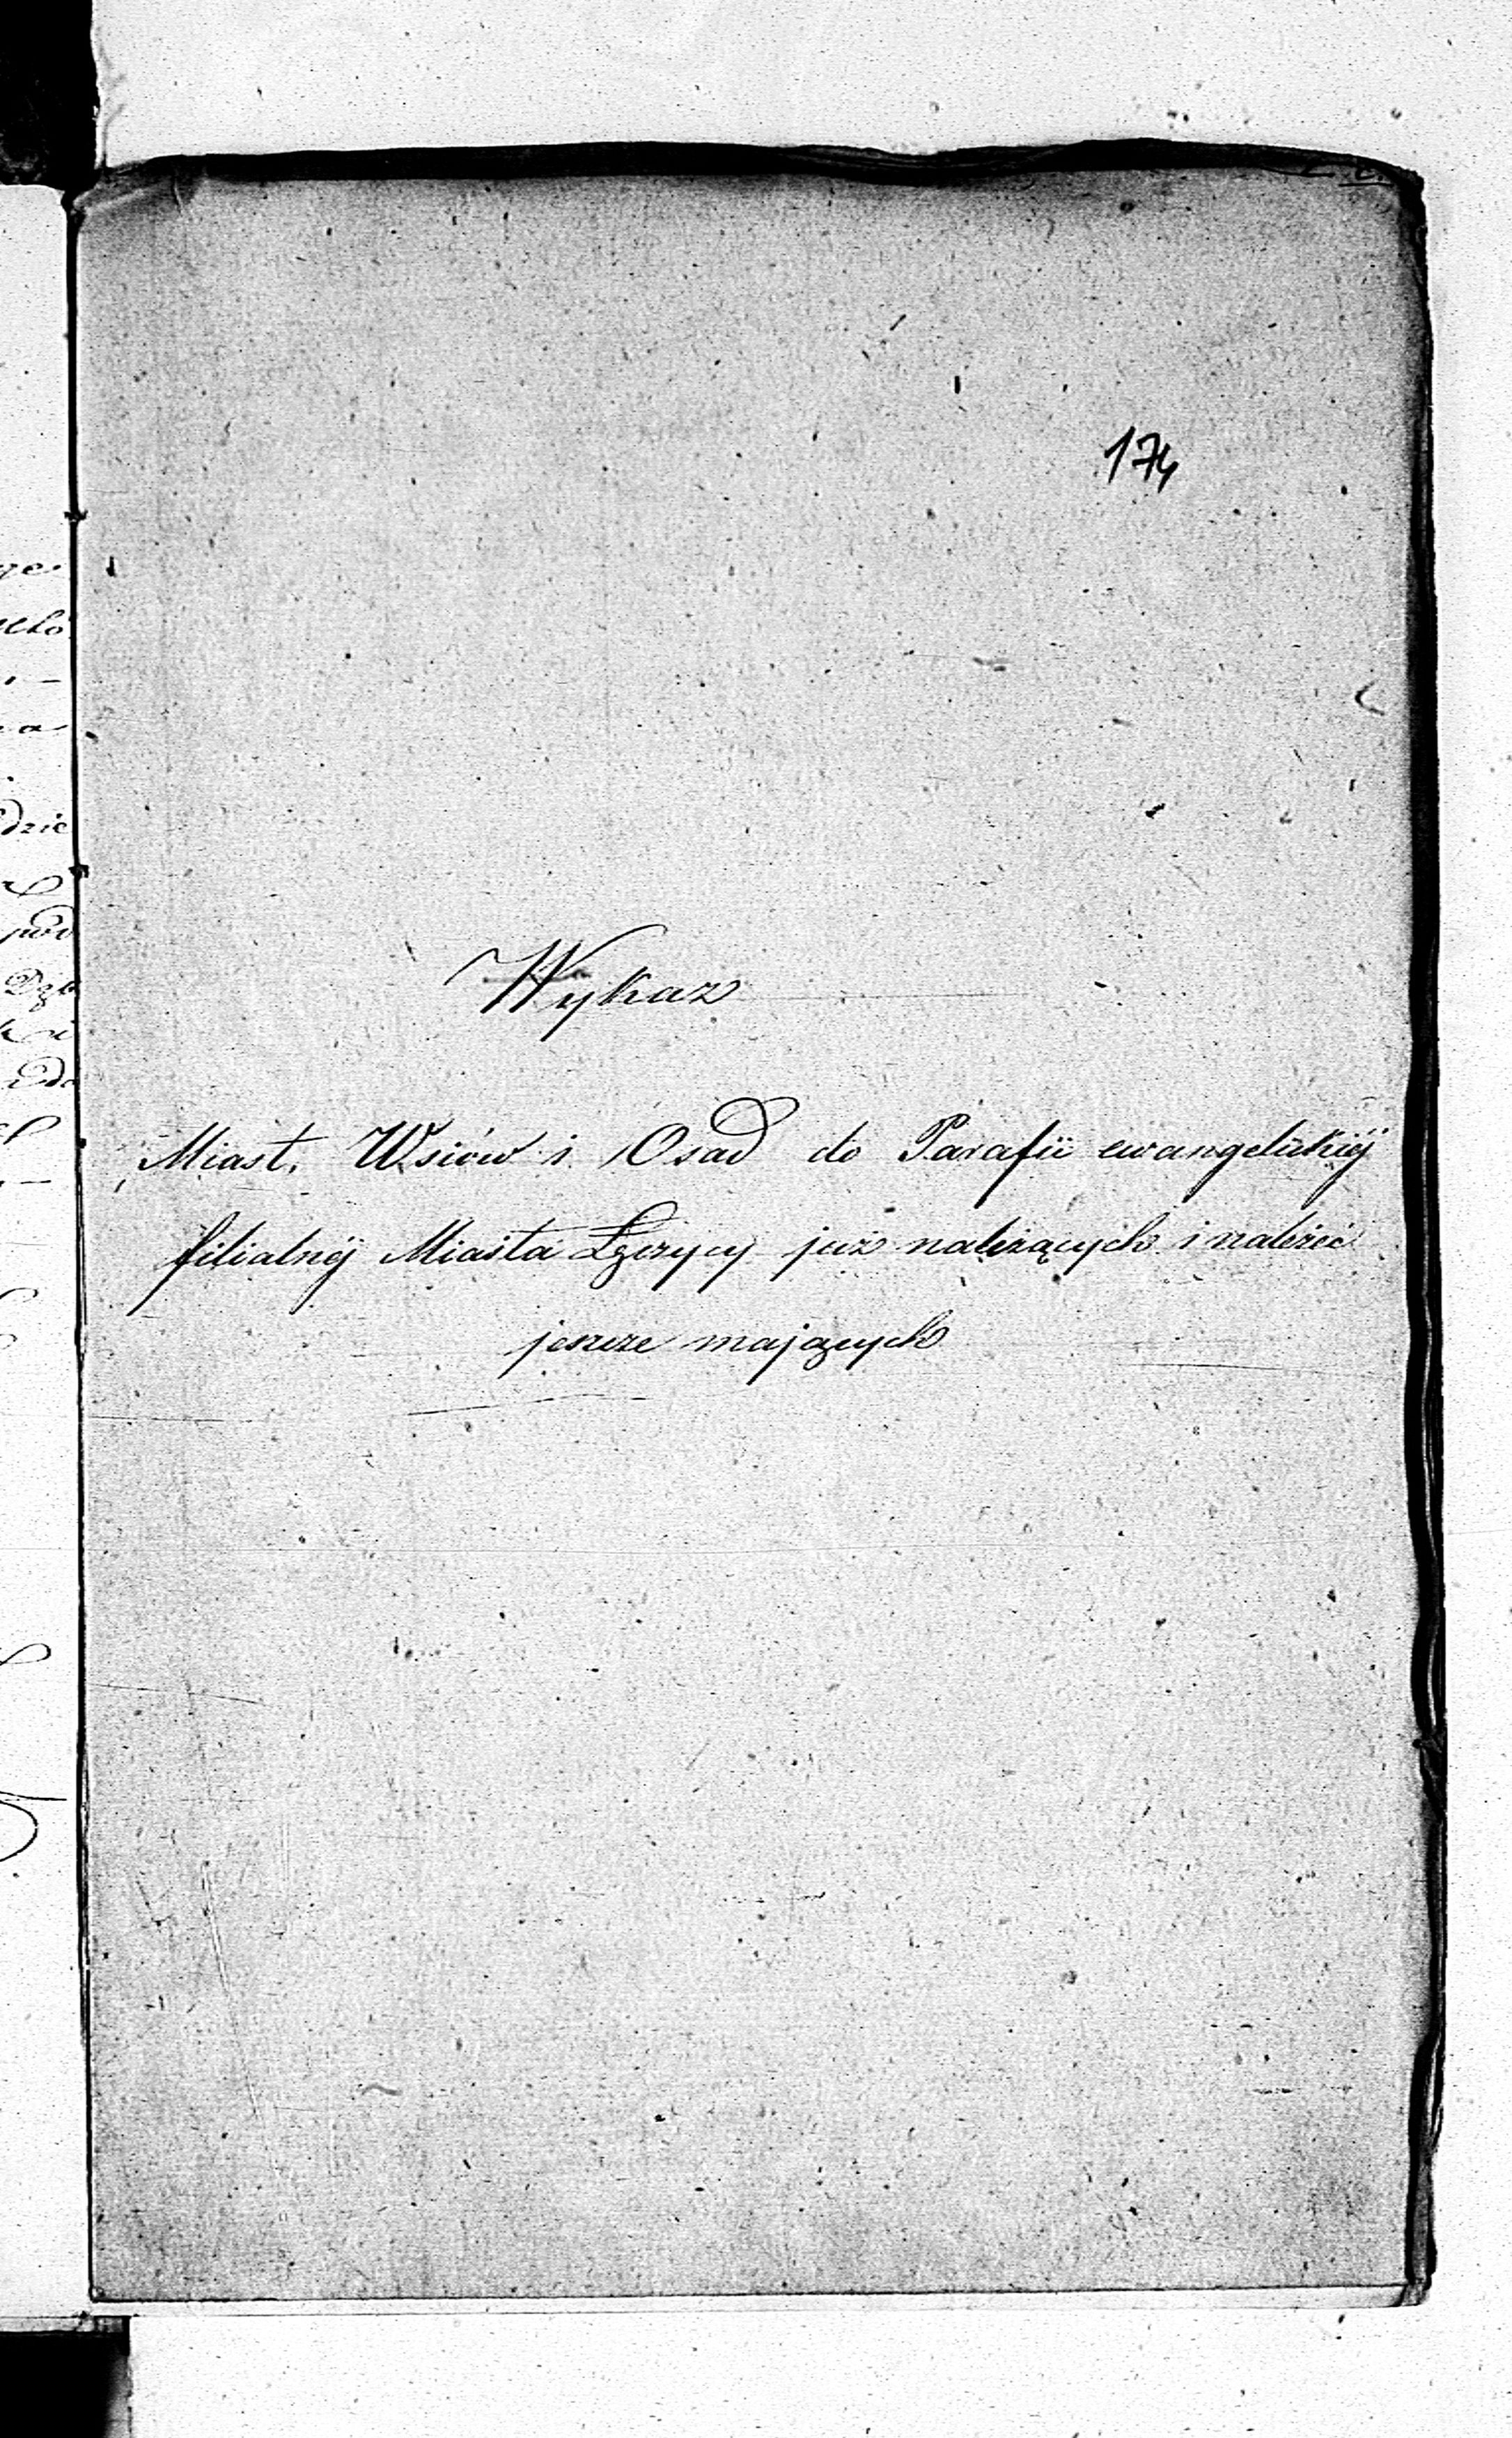 174
Wykaz
Miast, Wsiów i Osad do Parafii ewangelickiéj
filialnéj Miasta Łęczycy już należących i należéć
jeszcze mających